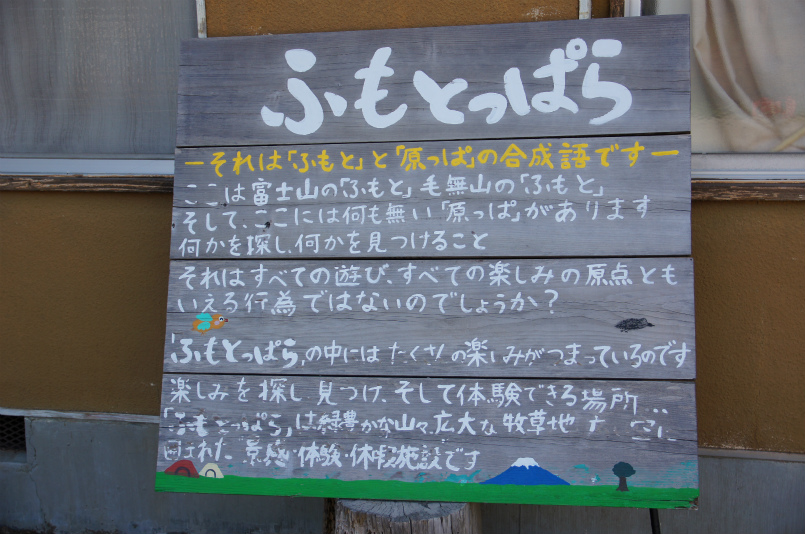 ふもとっぱら
ーそれは「ふもと」と「原っぱ」の合成語ですー
ここは富士山の「ふもと」毛無山の「ふもと」
そして、ここには何も無い「原っぱ」があります
何かを探し、何かを見つけること
それはすべての遊び、すべての楽しみの原点とも
いえる行為ではないのでしょうか？
「ふもとっぱら」の中にはたくさんの楽しみがつまっているのです
楽しみを探し見つけ、そして体験できる場所…
「ふもとっぱら」は緑豊かな山々広大な牧草地
囲まれた 体験・休暇施設です